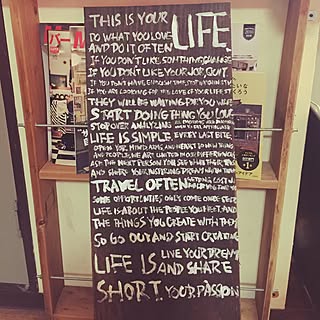 THIS IS YOUR LIFE.
DO WHAT YOU LOVE
AND DO IT OFTEN
IF YOU DON'T LIKE SOMETHING, CHANGE
IF YOU DON'T LIKE YOUR JOB, QUIT.
IF YOU DON'T HAVE ENOUGH TIME, STOP
IF YOU ARE LOOKING FOR THE LOVE OF YOUR LIFE, ST
THEY WILL BE WAITING FOR YOU WHE
START DOING THING YOU LOVE
STOP OVER ANALYZING
LIFE IS SIMPLE EVERY LAST BITE.
OPEN YOUR MIND, ARMS, AND HEART TO NEW THING
AND PEOPLE, WE ARE UNITED IN OUR DIFFERENC
ASK THE NEXT PERSON YOU SEE WHAT THEIR
AND SHARE YOUR INSPIRING DREAM WITH THEM
TRAVEL OFTEN
SOME OPPORTUNITIES ONLY COME ONCE
LIFE IS ABOUT THE PEOPLE YOU MEET, AND
THE THINGS YOU CREATE WITH THEM
SO GO OUT AND START CREATING
LIFE IS SHORT.
LIVE YOUR DREAM
AND SHARE
YOUR PASSION